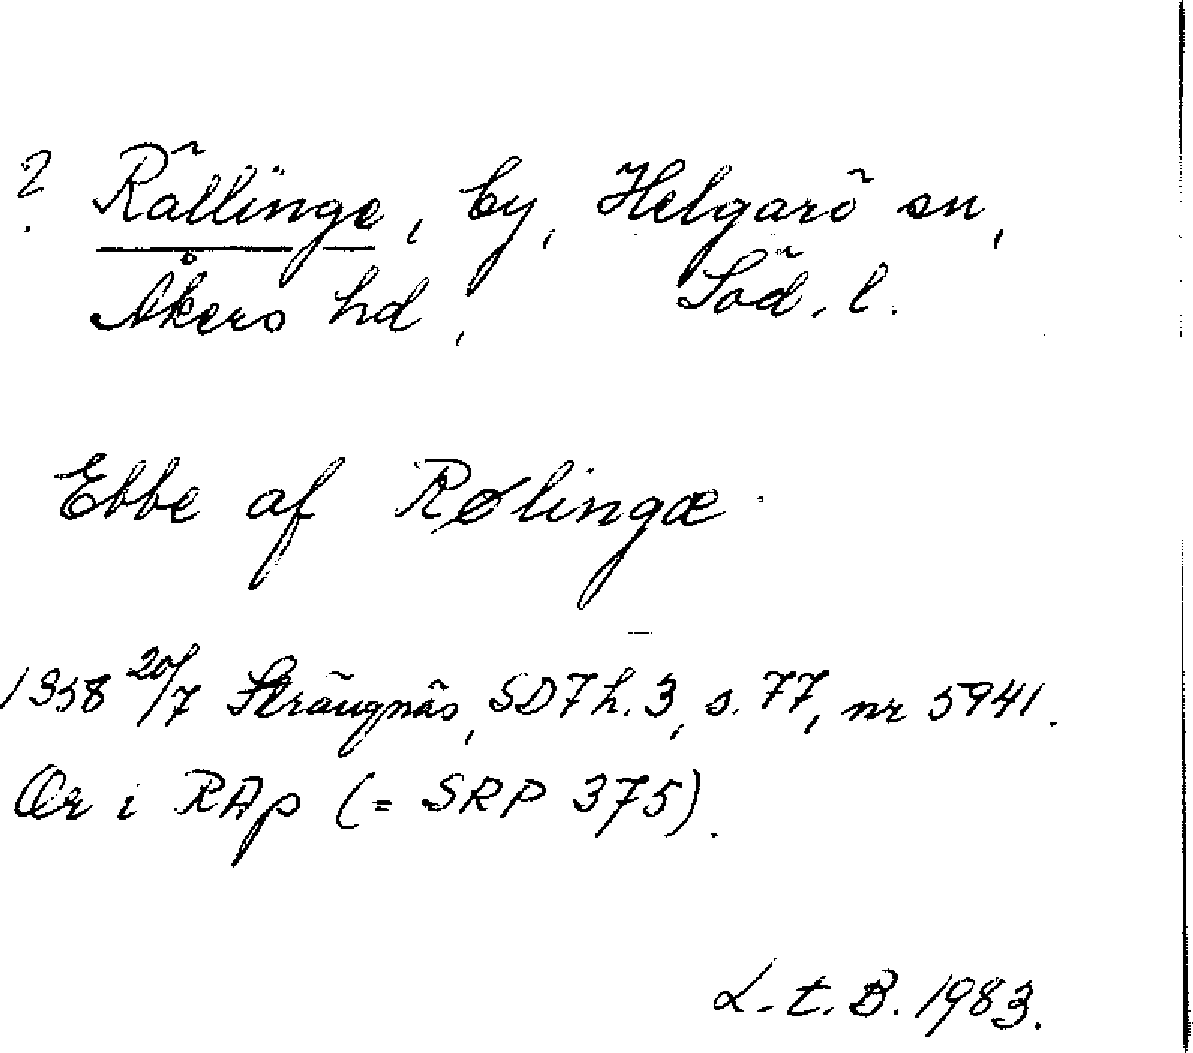 ? Rällinge, by, Helgarö sn,
Åkers hd, Söd. l.
Ebbe af Rølingæ
1358 20/7 Strängnäs, SD 7 h. 3, s. 77, nr 5941.
Or i RAp (= SRP 375).
L. t. B. 1983.